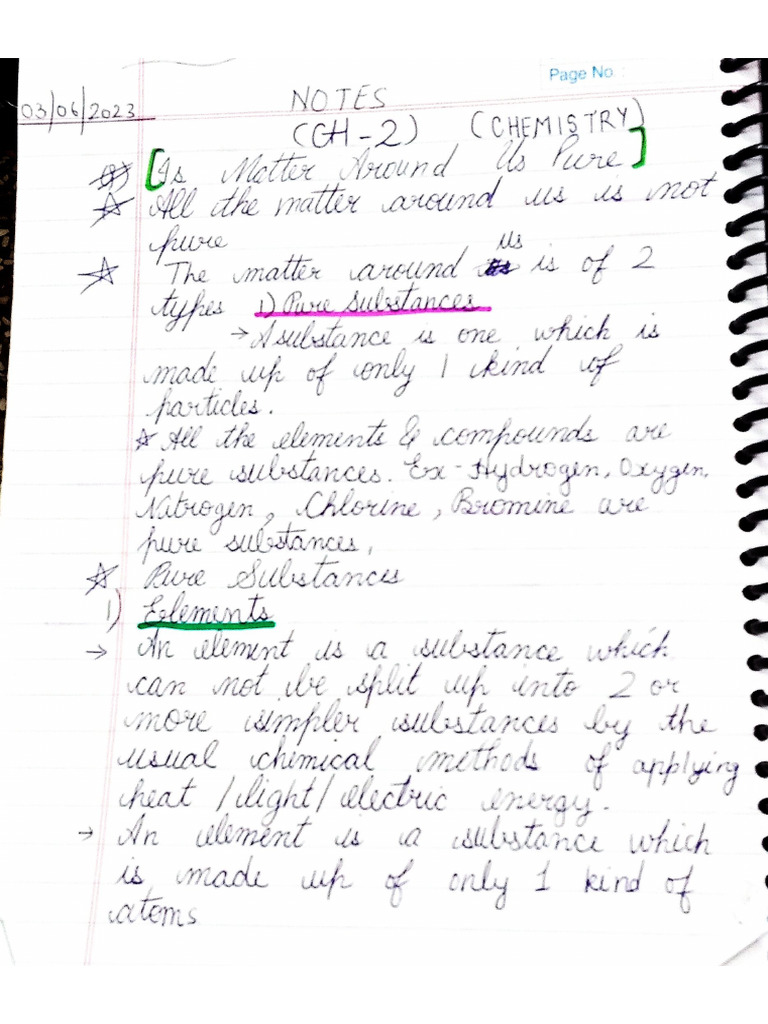 Page No. :
03/06/2023
NOTES
(CH-2) (CHEMISTRY)
[Is Matter Around Us Pure]
☆ All the matter around us is not
pure
☆ The matter around us is of 2
types 1) Pure Substances
→ A substance is one which is
made up of only 1 kind of
particles.
☆ All the elements & compounds are
pure substances. Ex - Hydrogen, Oxygen,
Nitrogen, Chlorine, Bromine are
pure substances,
☆ Pure Substances
1) Elements
→ An element is a substance which
can not be split up into 2 or
more simpler substances by the
usual chemical methods of applying
heat / light / electric energy.
→ An element is a substance which
is made up of only 1 kind of
atoms